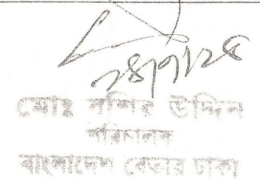 ২৪/৭/২৪
মোঃ বশির উদ্দিন
পরিচালক
বাংলাদেশ বেতার ঢাকা